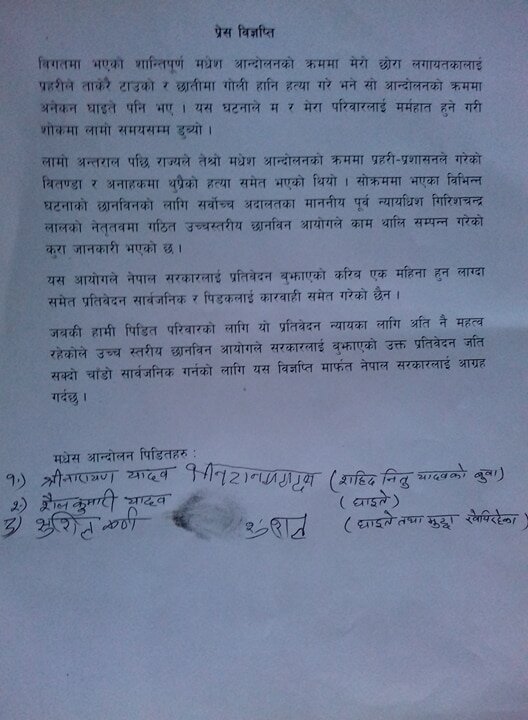 प्रेस विज्ञप्ति
विगतमा भएको शान्तिपूर्ण मधेश आन्दोलनको क्रममा मेरो छोरा लगायतकालाई
प्रहरीले ताकेरै टाउको र छातीमा गोली हानि हत्या गरे भने सो आन्दोलनको क्रममा
अनेकन घाइते पनि भए । यस घटनाले म र मेरा परिवारलाई मर्माहत हुने गरी
शोकमा लामो समयसम्म डुब्यो ।
लामो अन्तराल पछि राज्यले तेश्रो मधेश आन्दोलनको क्रममा प्रहरी-प्रशासनले गरेको
वितण्डा र अनाहकमा थुप्रैको हत्या समेत भएको थियो । सोक्रममा भएका विभिन्न
घटनाको छानविनको लागि सर्वोच्च अदालतका माननीय पूर्व न्यायधिश गिरिशचन्द्र
लालको नेतृतवमा गठित उच्चस्तरीय छानविन आयोगले काम थालि सम्पन्न गरेको
कुरा जानकारी भएको छ ।
यस आयोगले नेपाल सरकारलाई प्रतिवेदन बुझाएको करिव एक महिना हुन लाग्दा
समेत प्रतिवेदन सार्वजनिक र पिडकलाई कारवाही समेत गरेको छैन ।
जबकी हामी पिडित परिवारको लागि यो प्रतिवेदन न्यायका लागि अति नै महत्व
रहेकोले उच्च स्तरीय छानविन आयोगले सरकारलाई बुझाएको उक्त प्रतिवेदन जति
सक्दो चाँडो सार्वजनिक गर्नको लागि यस विज्ञप्ति मार्फत नेपाल सरकारलाई आग्रह
गर्दछु ।
मधेस आन्दोलन पिडितहरु :
१.) श्रीनारायण यादव (शहिद नितु यादवको बुवा)
२) शैल कुमारी यादव (घाइते)
३) (घाइते तथा मुद्दा